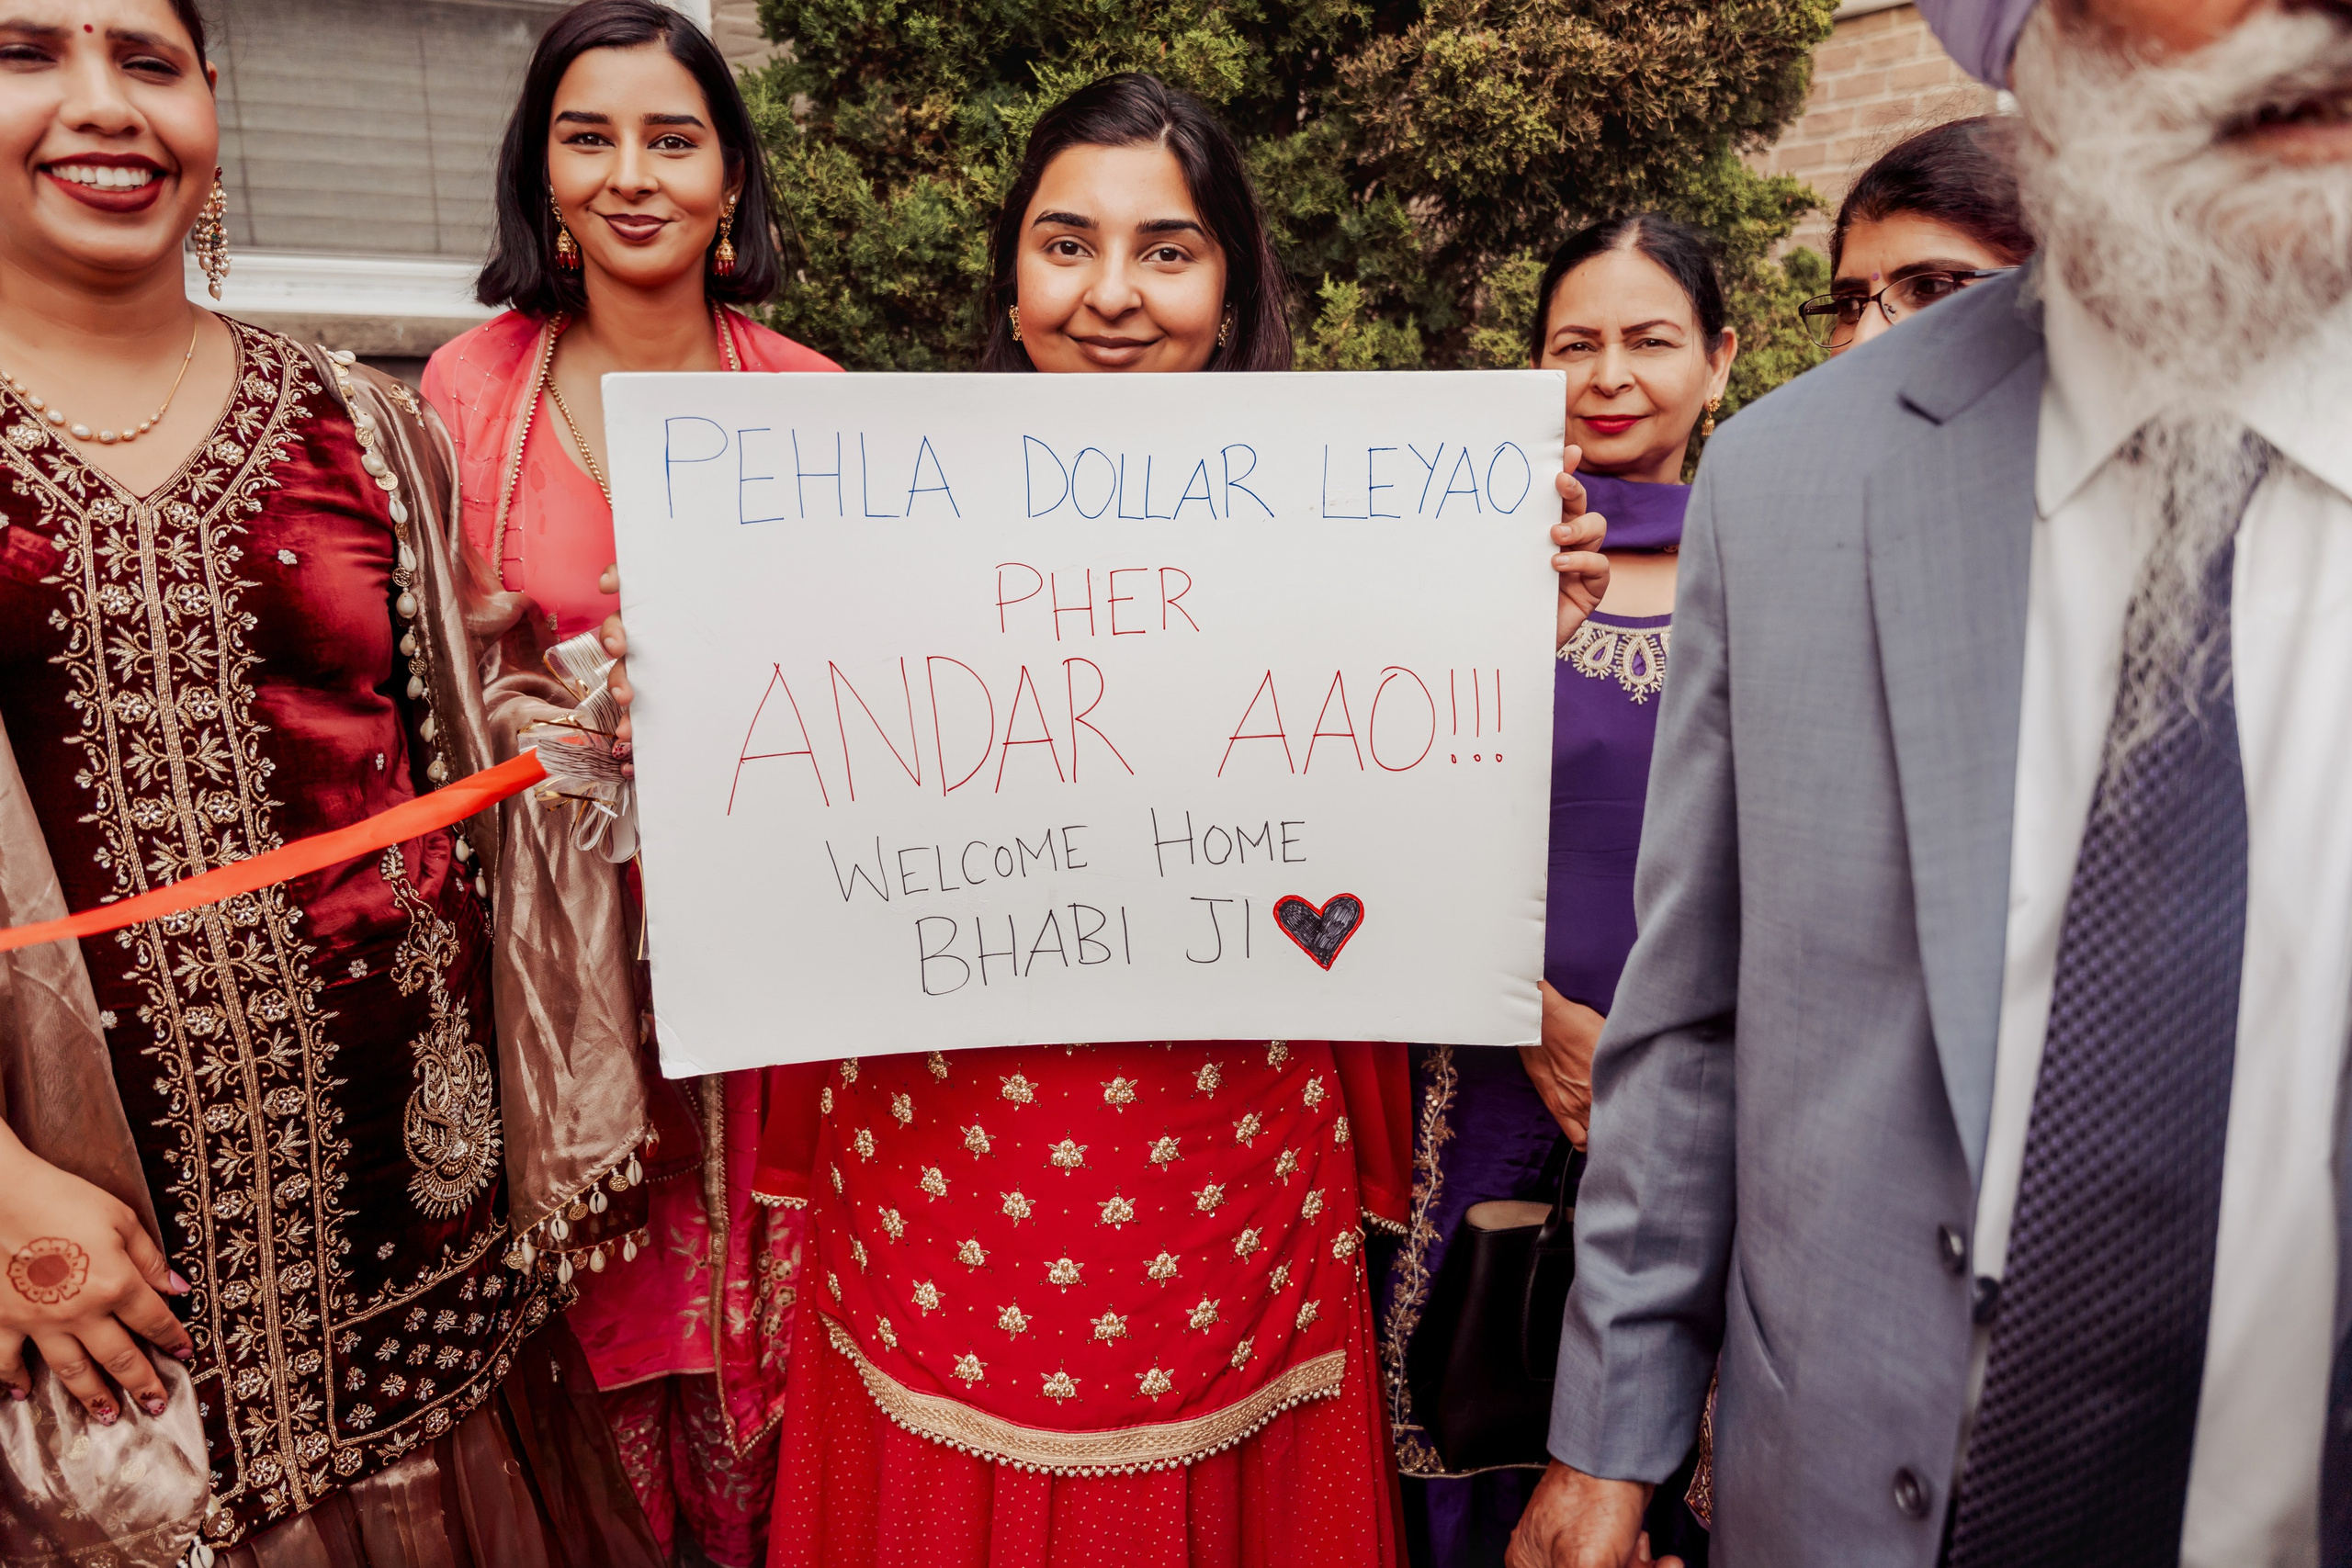 PEHLA DOLLAR LEYAO
PHER
ANDAR AAO!!!
WELCOME HOME
BHABI JI